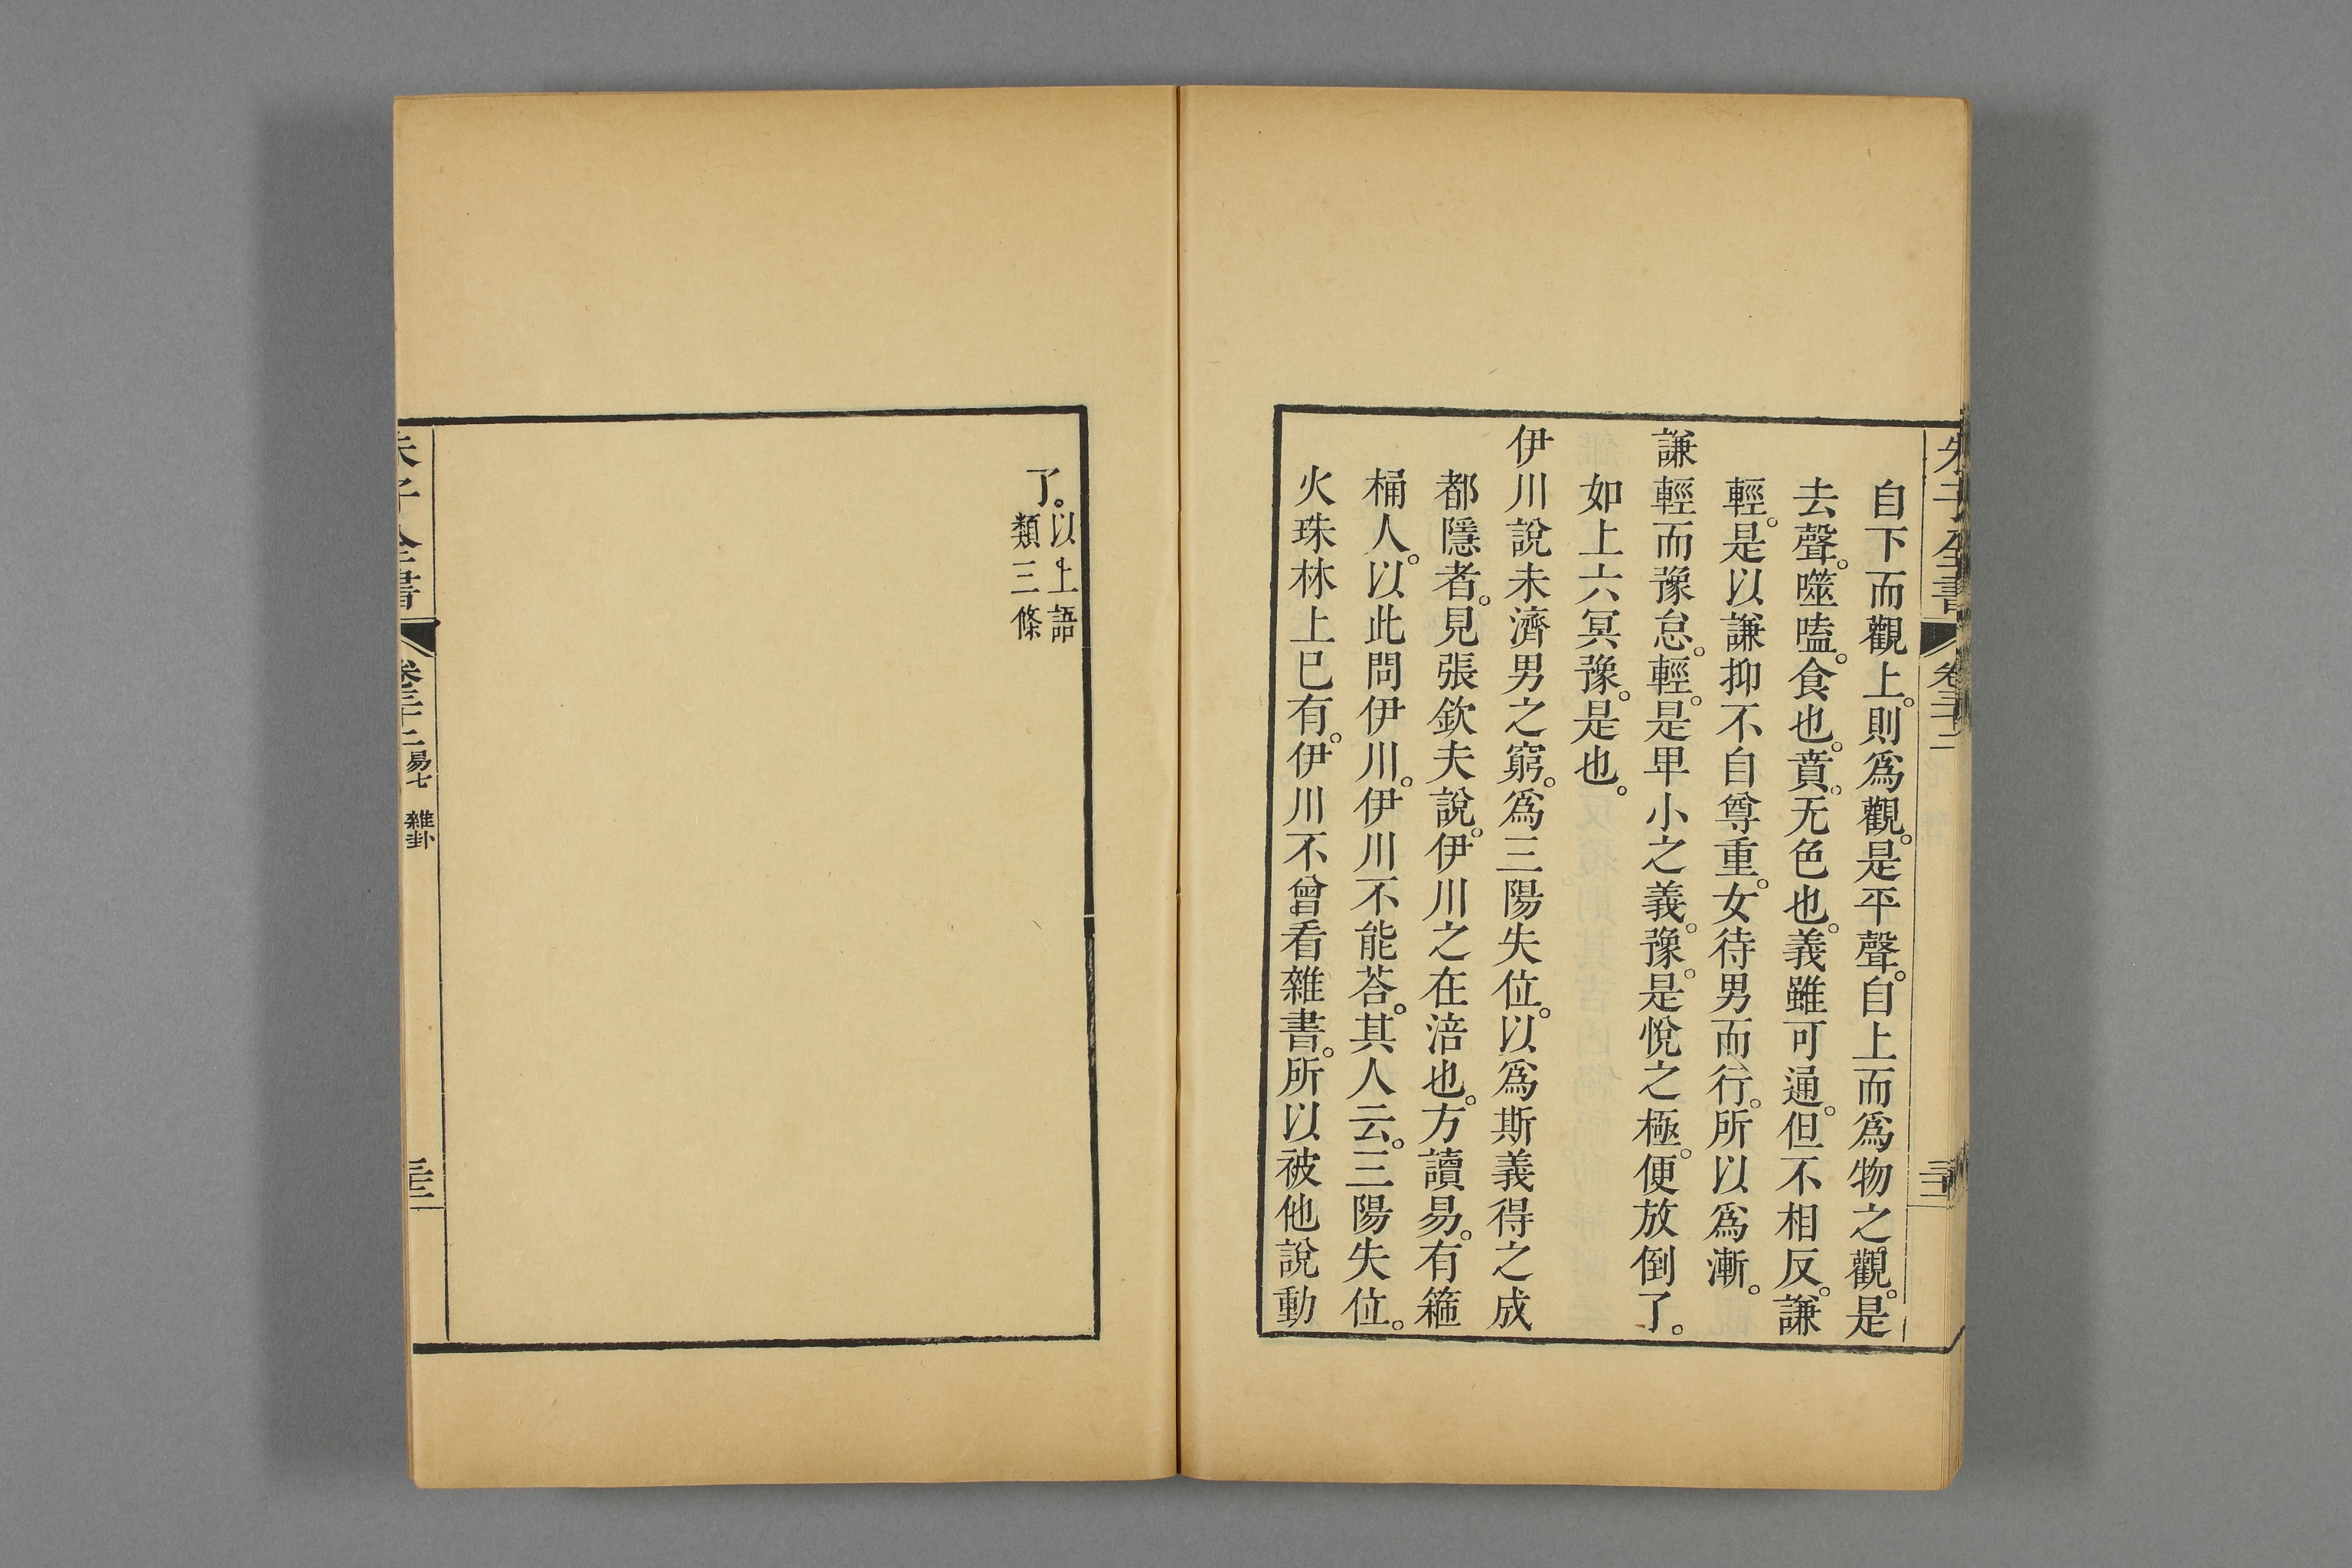 自下而觀上。則爲觀。是平聲。自上而爲物之觀。是
去聲。噬嗑。食也。賁。无色也。義雖可通。但不相反。謙
輕。是以謙抑不自尊重。女待男而行。所以爲漸。
謙輕而豫怠。輕。是卑小之義。豫。是悅之極。便放倒了。
如上六冥豫。是也。
伊川說未濟男之窮。爲三陽失位。以爲斯義得之成
都隱者。見張欽夫說。伊川之在涪也。方讀易。有箍
桶人。以此問伊川。伊川不能荅。其人云。三陽失位。
火珠林上已有。伊川不曾看雜書。所以被他說動
了。以上語
類三條
朱子全書
卷三十二
朱子全書
卷三十二 易七 雜卦